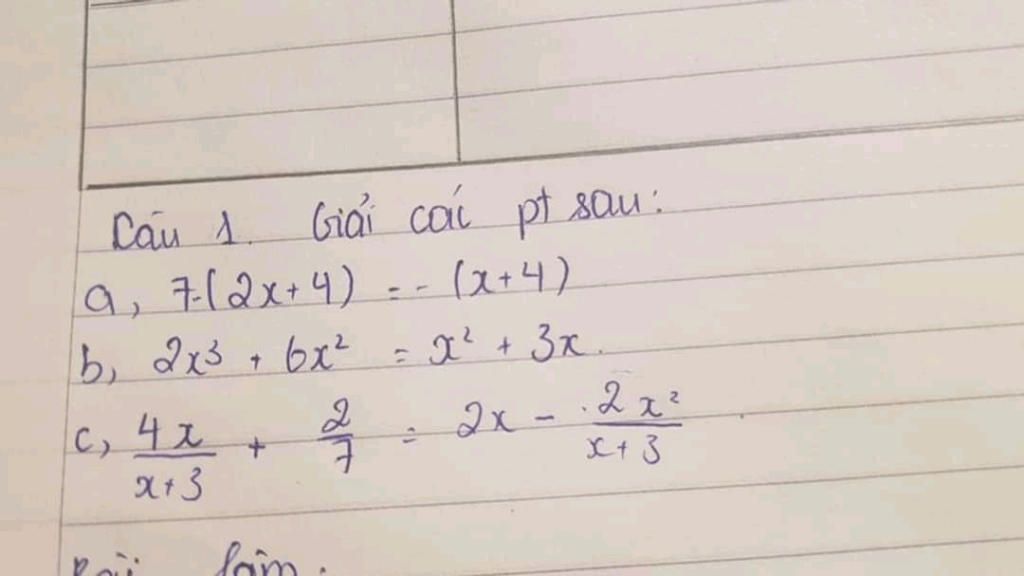 Câu 1. Giải các pt sau:
a, 7-(2x+4) = - (x+4)
b, 2x³ + 6x² = x² + 3x.
c, 4x/x+3 + 2/7 = 2x - 2x²/x+3
Bài làm: